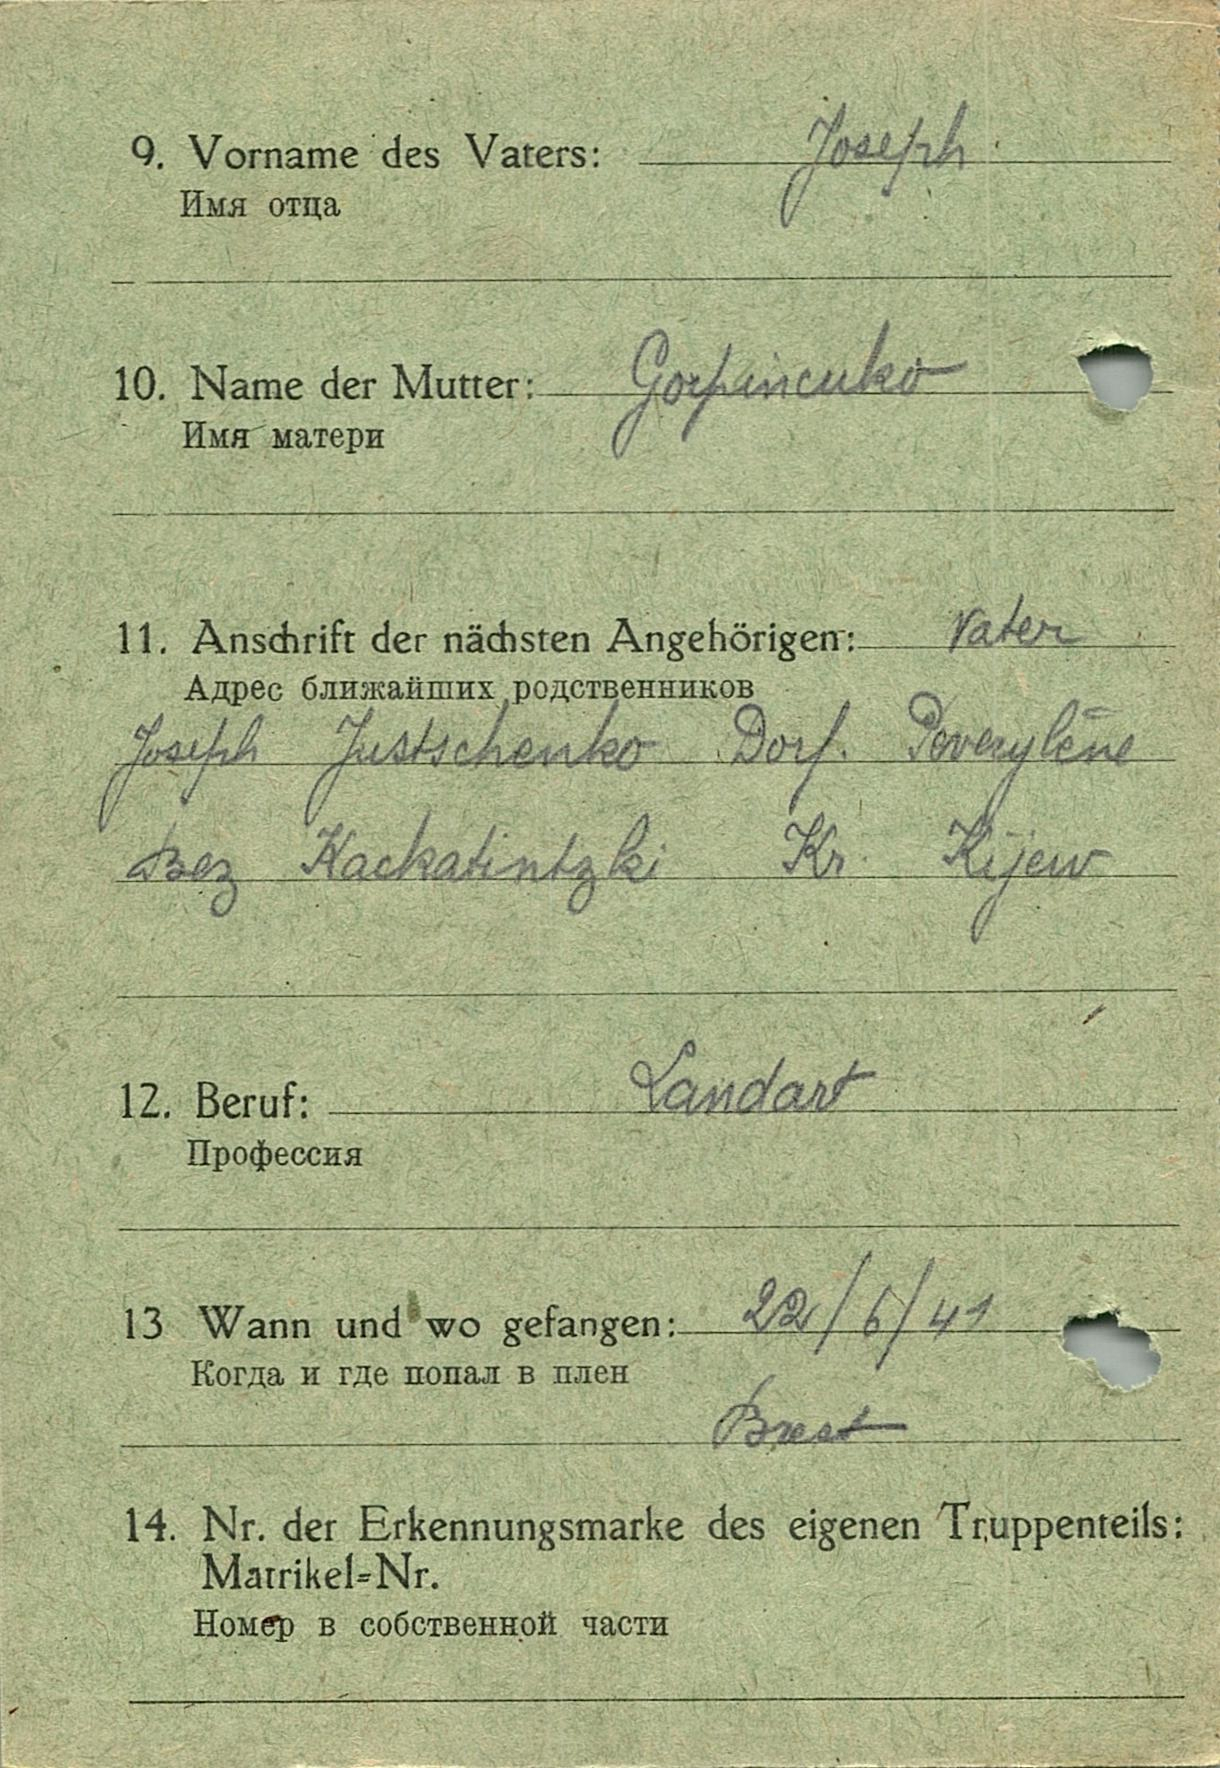 9. Vorname des Vaters: Joseph
Имя отца
10. Name der Mutter: Gorpincuko
Имя матери
11. Anschrift der nächsten Angehörigen: Vater
Адрес ближайших родственников
Joseph Justschenko Dorf.
Bez Kackatintzki Kr. Kijew
12. Beruf: Landart
Профессия
13 Wann und wo gefangen: 22/6/41
Когда и где попал в плен
Brest
14. Nr. der Erkennungsmarke des eigenen Truppenteils:
Matrikel=Nr.
Номер в собственной части